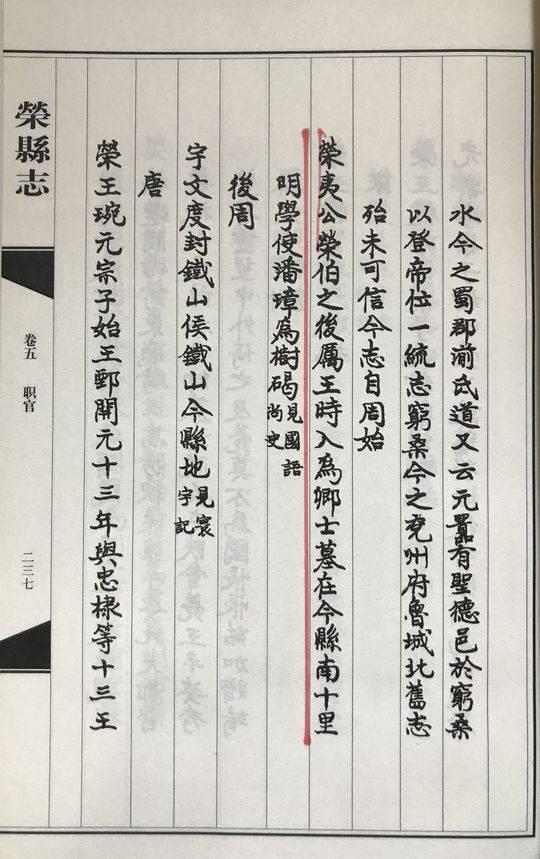 水今之蜀郡湔氐道又云元囂有聖德邑於窮桑
以登帝位一統志窮桑今之兗州府魯城北舊志
殆未可信今志自周始
榮夷公榮伯之後厲王時入為卿士墓在今縣南十里
明學使潘璋為樹碣見國語尚史
後周
宇文度封鐵山侯鐵山今縣地見寰宇記
唐
榮王琬元宗子始王鄄開元十三年與忠棣等十三王
榮縣志
卷五 职官
二三七